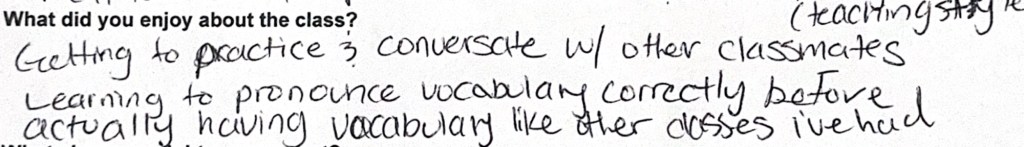 (teaching style
What did you enjoy about the class?
Getting to practice & conversate w/ other classmates
Learning to pronounce vocabulary correctly before
actually having vocabulary like other classes i've had